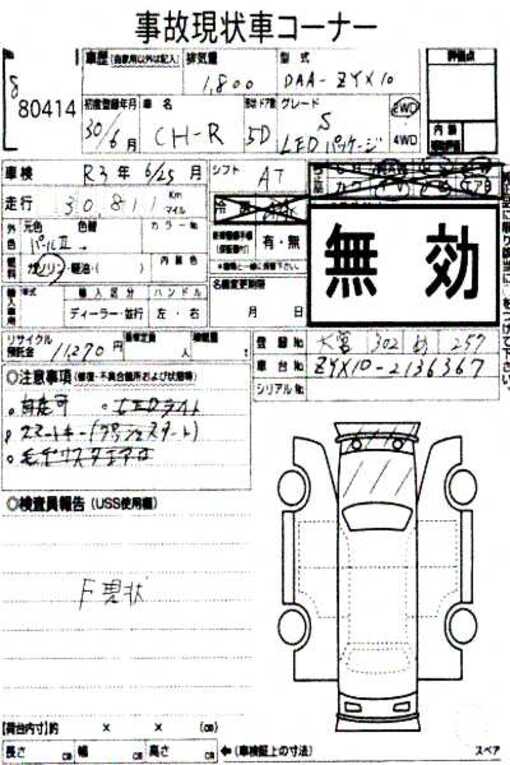 事故現状車コーナー
8
80414
車歴 (自家用以外は記入) 排気量 型式 評価点
1,800 DAA-ZYX10
初度登録年月 車名 形状 ドア数 グレード
30/6月 CH-R 5D S LEDパッケージ 2WD 4WD
内装
車検 R3年6/25月 シフト AT
走行 30,811 Km マイル
冷房
無効
外色 元色 色替 カラーNo
パールII →
有・無
燃料 ガソリン・軽油・( ) 内装色
名義変更期限
月 日
輸入車 年式 輸入区分 ハンドル
ディーラー・並行 左・右
リサイクル預託金 11,270円 人
登録No 大宮 302 め 257
車台No ZYX10-2136367
シリアルNo
◎注意事項(修復・不具合箇所および状態等)
。自走可 。LEDライト
。スマートキー(プッシュスタート)
◎検査員報告(USS使用欄)
F現状
【荷台内寸】約 × × (cm)
長さ cm 幅 cm 高さ cm ←(車検証上の寸法) スペア